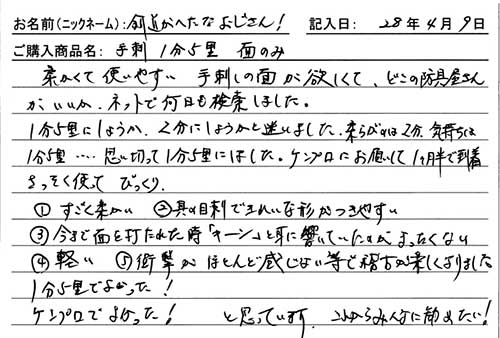 お名前(ニックネーム): 剣道がへたなおじさん! 記入日: 28年4月9日
ご購入商品名: 手刺 1分5里 面のみ
柔かくて使いやすい 手刺しの面が欲しくて、どこの防具屋さん
がいいか、ネットで何日も検索しました。
1分5里にしようか、2分にしようかと迷いました。柔らかいのは2分、気持ちは
1分5里……思い切って1分5里にしました。ケンプロにお願いして1ヶ月半で到着
さっそく使って びっくり。
① すごく柔かい ②具の目刺できれいな形がつきやすい
③ 今まで面を打たれた時「キーン」と耳に響いていたのがまったくない
④ 軽い ⑤衝撃がほとんど感じない等で稽古が楽しくなりました
1分5里でよかった!
ケンプロでよかった! と思っています。これからみんなに勧めたい!